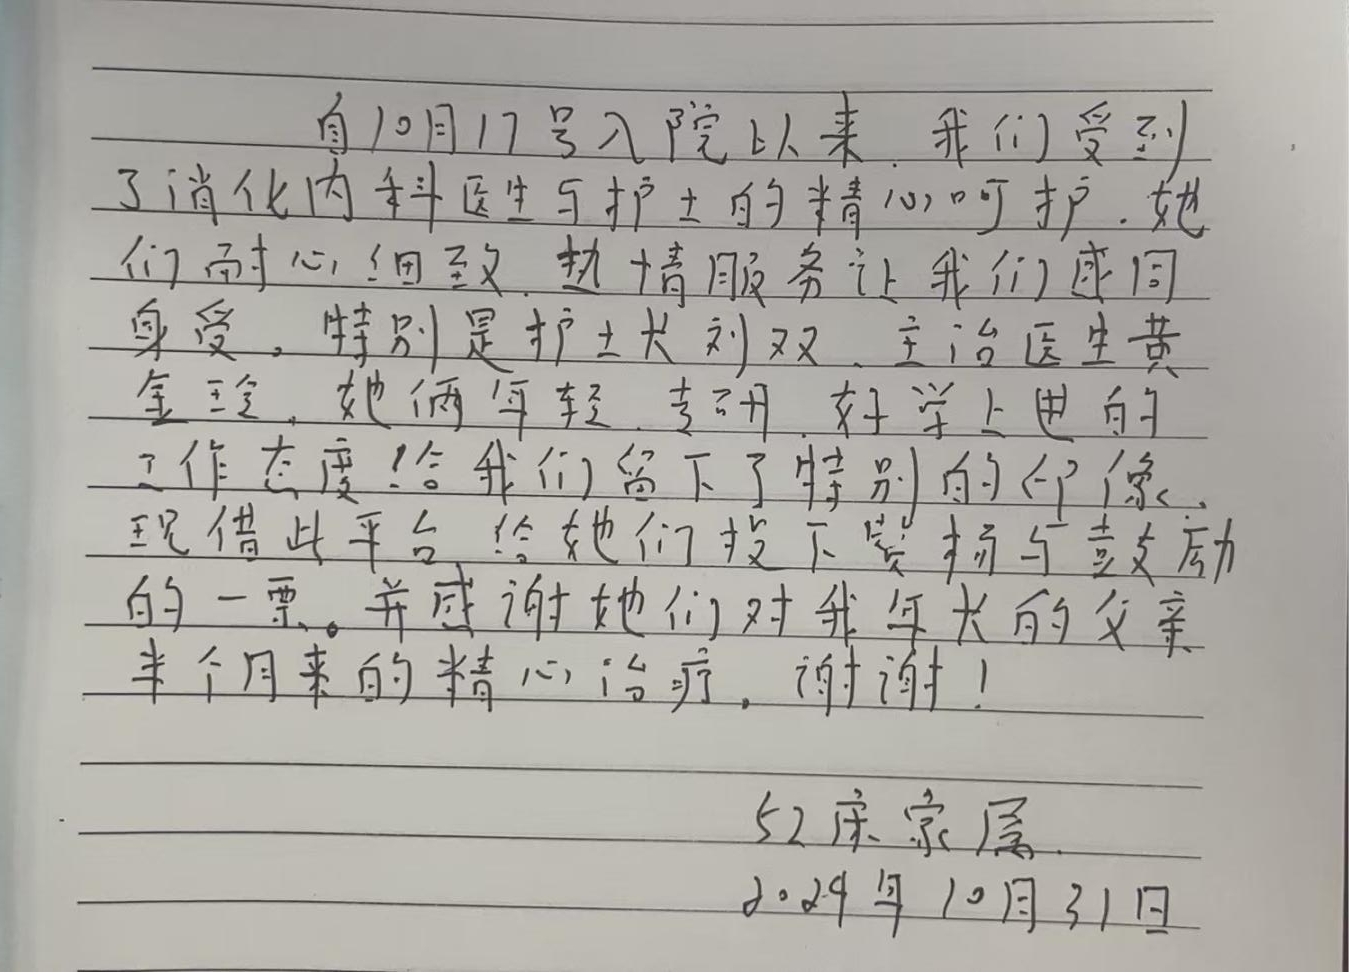 自10月17号入院以来.我们受到
了消化内科医生与护士的精心呵护.她
们耐心细致.热情服务让我们感同
身受。特别是护士长刘双、主治医生黄
金珍.她俩年轻.专研.好学上进的
工作态度给我们留下了特别的印像、
现借此平台给她们投下赞扬与鼓励
的一票。并感谢她们对我年长的父亲
半个月来的精心治疗。谢谢！
52床家属.
2024年10月31日